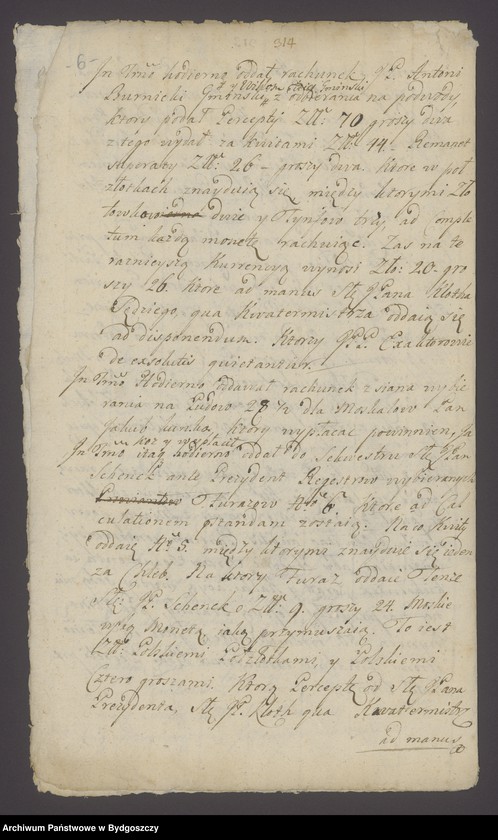 -6-
314
Jn Tmō hodierno oddał rachunek, JP. Antoni
Burnicki Gminski z odbierania na podwody
ktory podał Percepty Zllt: 70 groszy dwa
z tego wydał za kwitami Zllt: 44 - Remanet
superasse Zllt: 26 - groszy dwa. ktore w poł
złotkach znayduią się między ktorymi Zło
dwie y Tynfow trzy, ad comple
tum każdą monetę rachuiąc. Zas na te
raznieyszą Kurrencyą wynosi Zło: 20. gro
szy 26. ktore ad manus Słę JPana Klotha
Sędziego, qua Kwatermistrza oddaią się
ad disponendum. Ktorzy JPP. Exaktorowie
de exolutis quietantur.
Jn Tmō Hodierno oddawał rachunek z siana wybie
rania na Ludow 28½ dla Moskalow Pan
Jakub ktory wypłacac powinien,
Jn Tmō itaq hodierno oddał do Sekwestru Słę JPan
Schenek ante Prezydent Regestrow wybieranych
Furażow Nro 6 ktore ad Cal
culationem przandam zostaią. Naco Kwity
oddaie Nr 5. między ktorymi znayduie się ieden
za Chleb. Na ktory Furaż oddaie Tenże
Słę: JP. Schenek Zllt: 9. groszy 24. Moskie
wską Monetą iaką przymuszaią. To iest
Zllt: Polskiemi Puzłotkami, y Polskiemi
Cztero groszami. Ktorą Perceptę od Słę JPana
Prezydenta, Słę JP. Kloth qua Kwatermistrz
ad manus
Archiwum Państwowe w Bydgoszczy